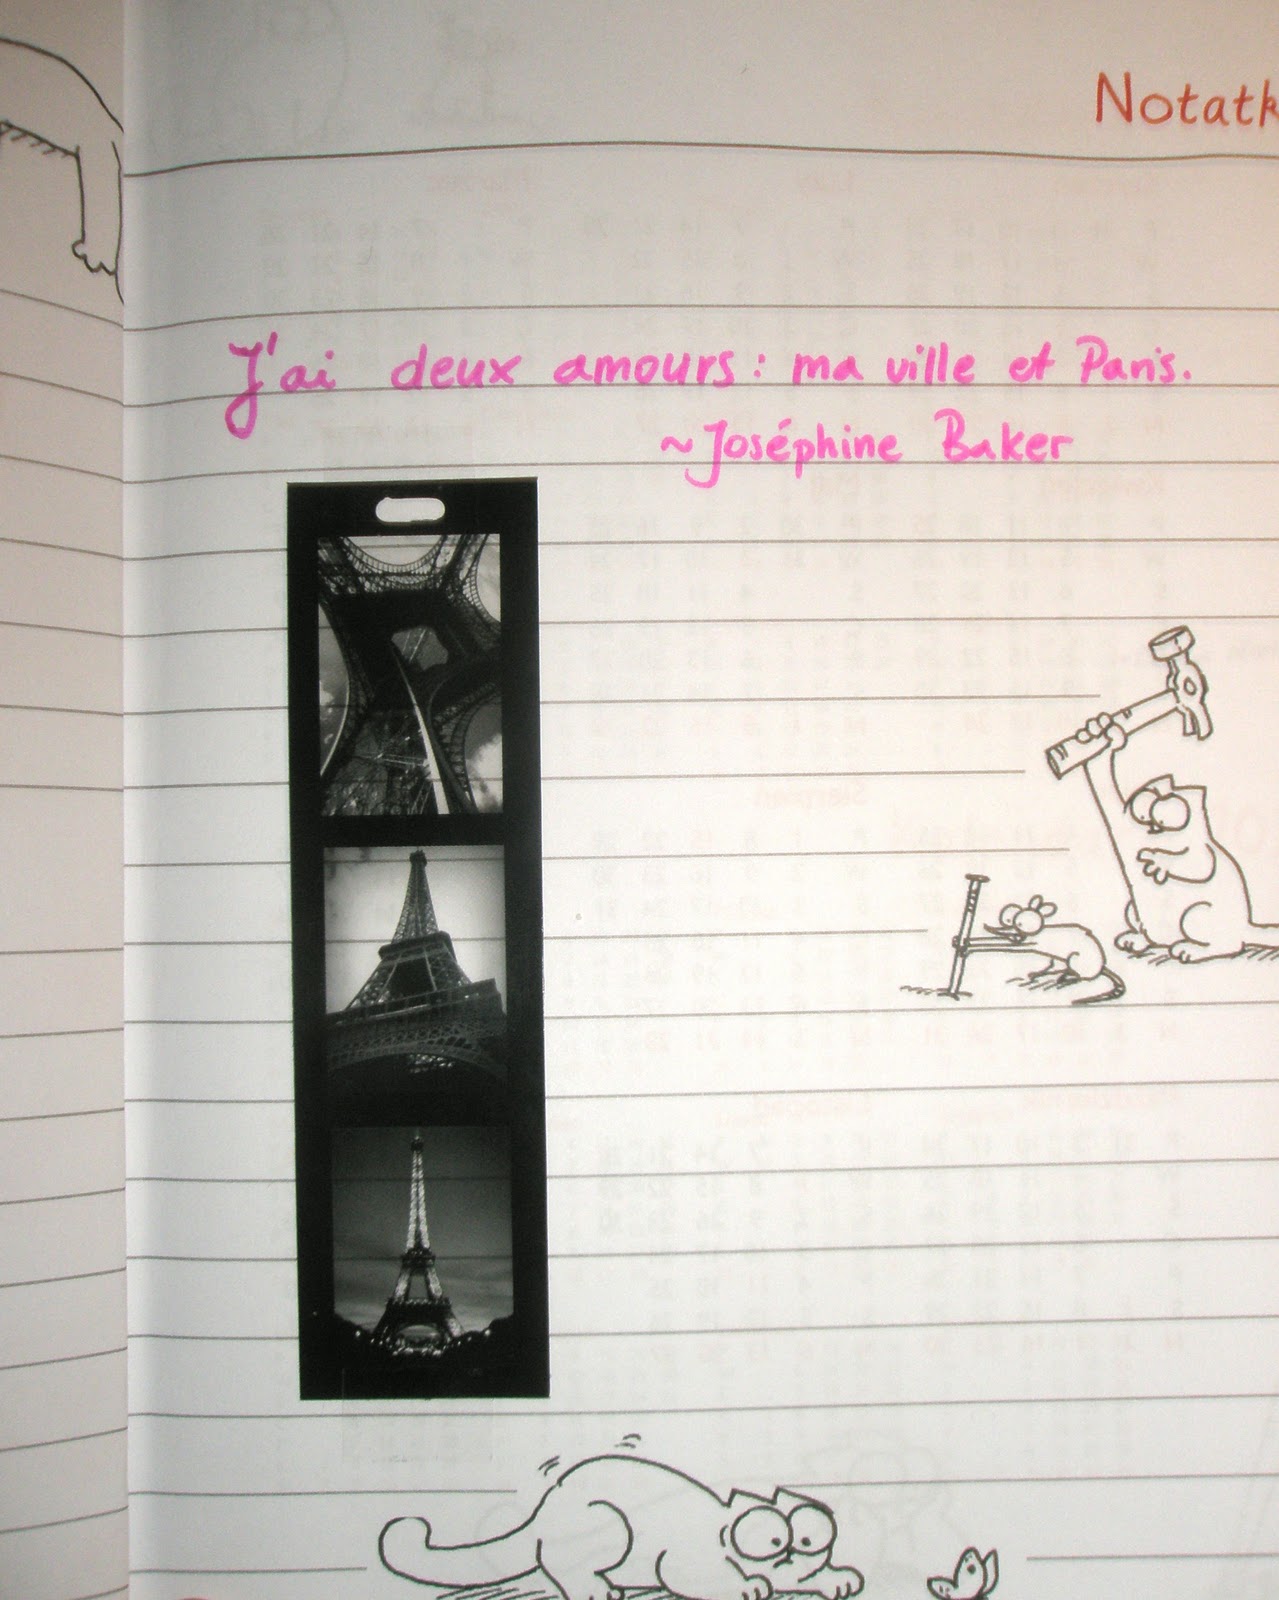 Notatk
J'ai deux amours: ma ville et Paris.
~Joséphine Baker